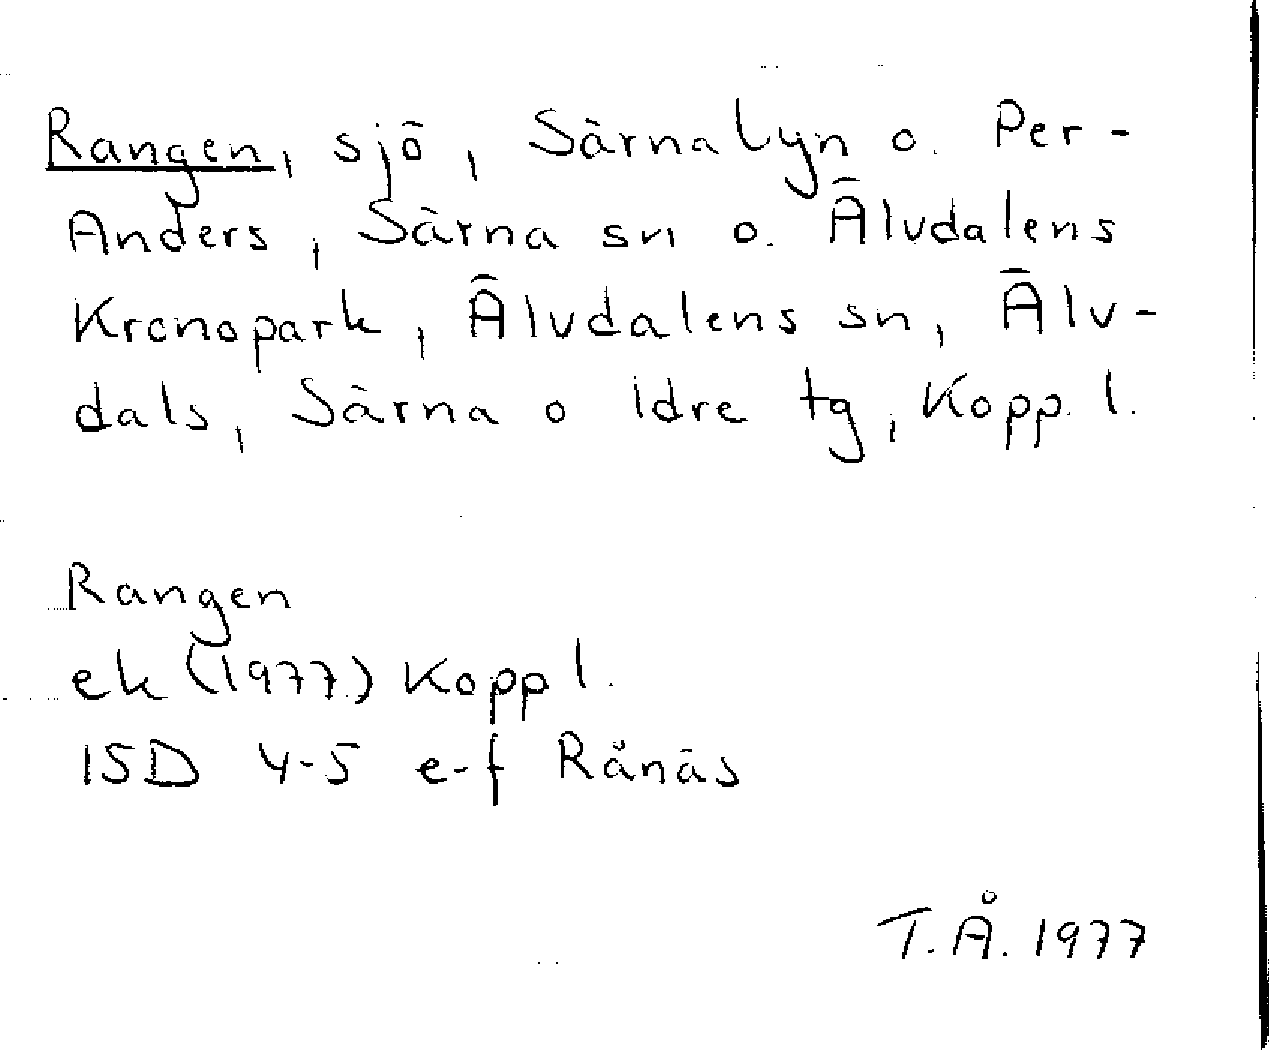 Rangen, sjö, Särnalyn o. Per-
Anders, Särna sn o. Älvdalens
Kronopark, Älvdalens sn, Älv-
dals, Särna o Idre tg, Kopp. l.
Rangen
ek (1977) Kopp l.
15D 4-5 e-f Rånäs
T.Å. 1977